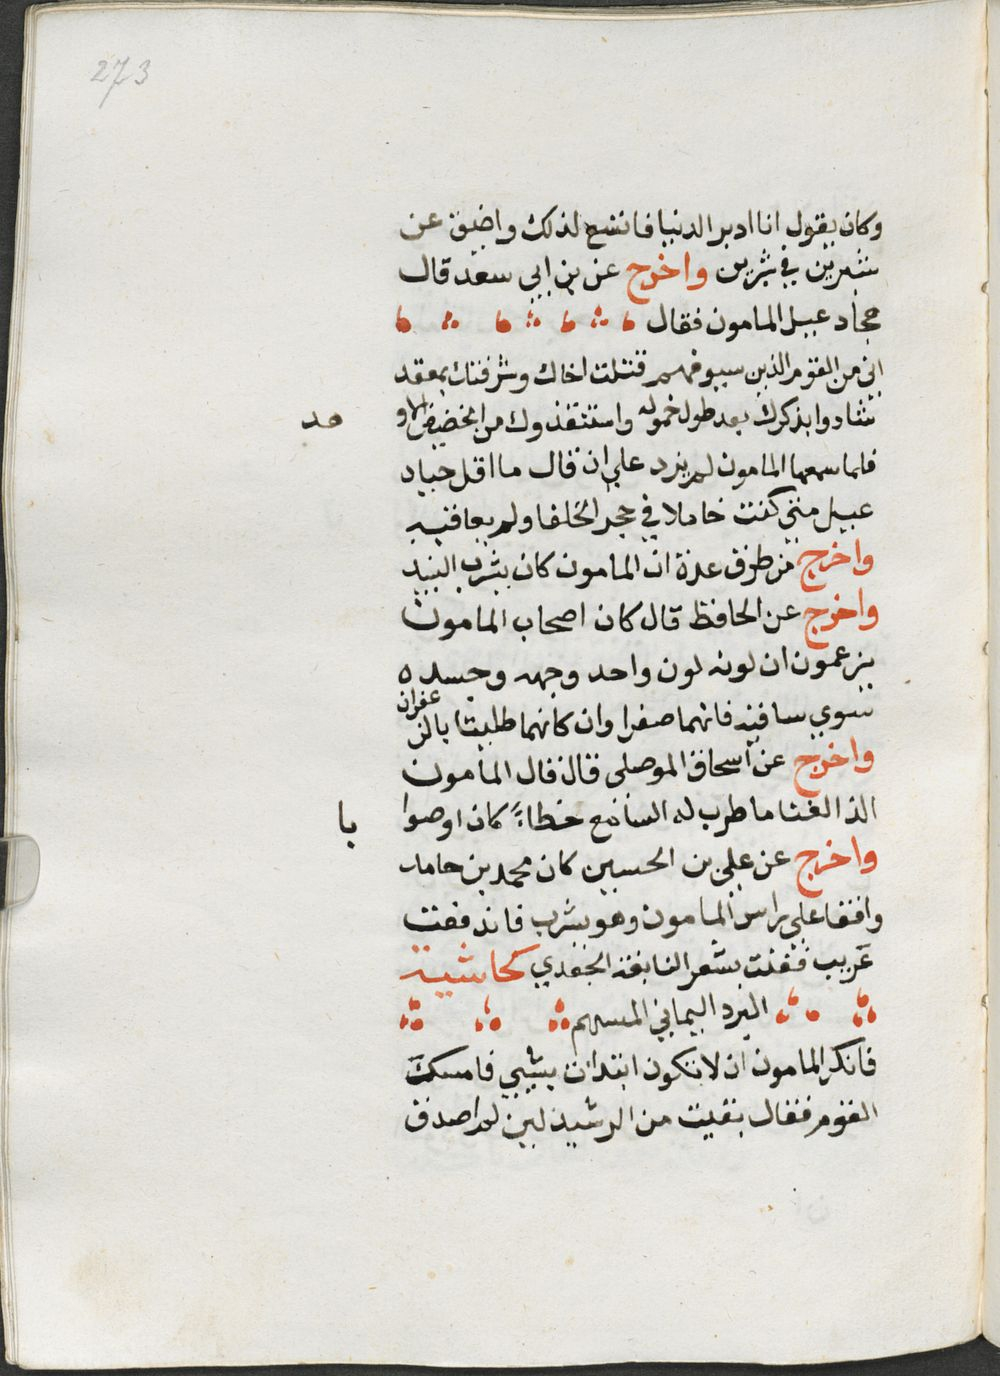 273
وكان يقول انا ادبر الدنيا فاتسع لذلك واضيق عن
شبرين في شبرين واخرج عن بن ابي سعد قال
هجاد عبيل المامون فقال
اني من القوم الذين سيوفهم قتلت اخاك وشرفتك بمقعد
شادوا بذكرك بعد طول خموله واستنقذوك من الحضيض الاو
هد
فلما سمعها المامون لم يزد علي ان قال ما اقل حياد
عبيل متي كنت خاملا في حجر الخلفا ولم يعاقبه
واخرج من طرق عدة ان المامون كان يشرب النبيد
واخرج عن الحافظ قال كان اصحاب المامون
يزعمون ان لونه لون واحد وجهه وجسده
سوي ساقيه فانهما صفراوان كانهما طليتا بالز
عفران
واخرج عن اسحاق الموصلي قال قال المامون
الذ الغنا ما طرب له السامع خطاءً كان اوصوا
با
واخرج عن علي بن الحسين كان محمد بن حامد
واقفا علي راس المامون وهو يشرب فاندفعت
عريب فغنت بشعر النابغه الجعدي كحاشية
البرد اليماني المسهم
فانكر المامون ان لا تكون ابتدات بشيي فامسك
القوم فقال نفيت من الرشيد لين لم اصدق